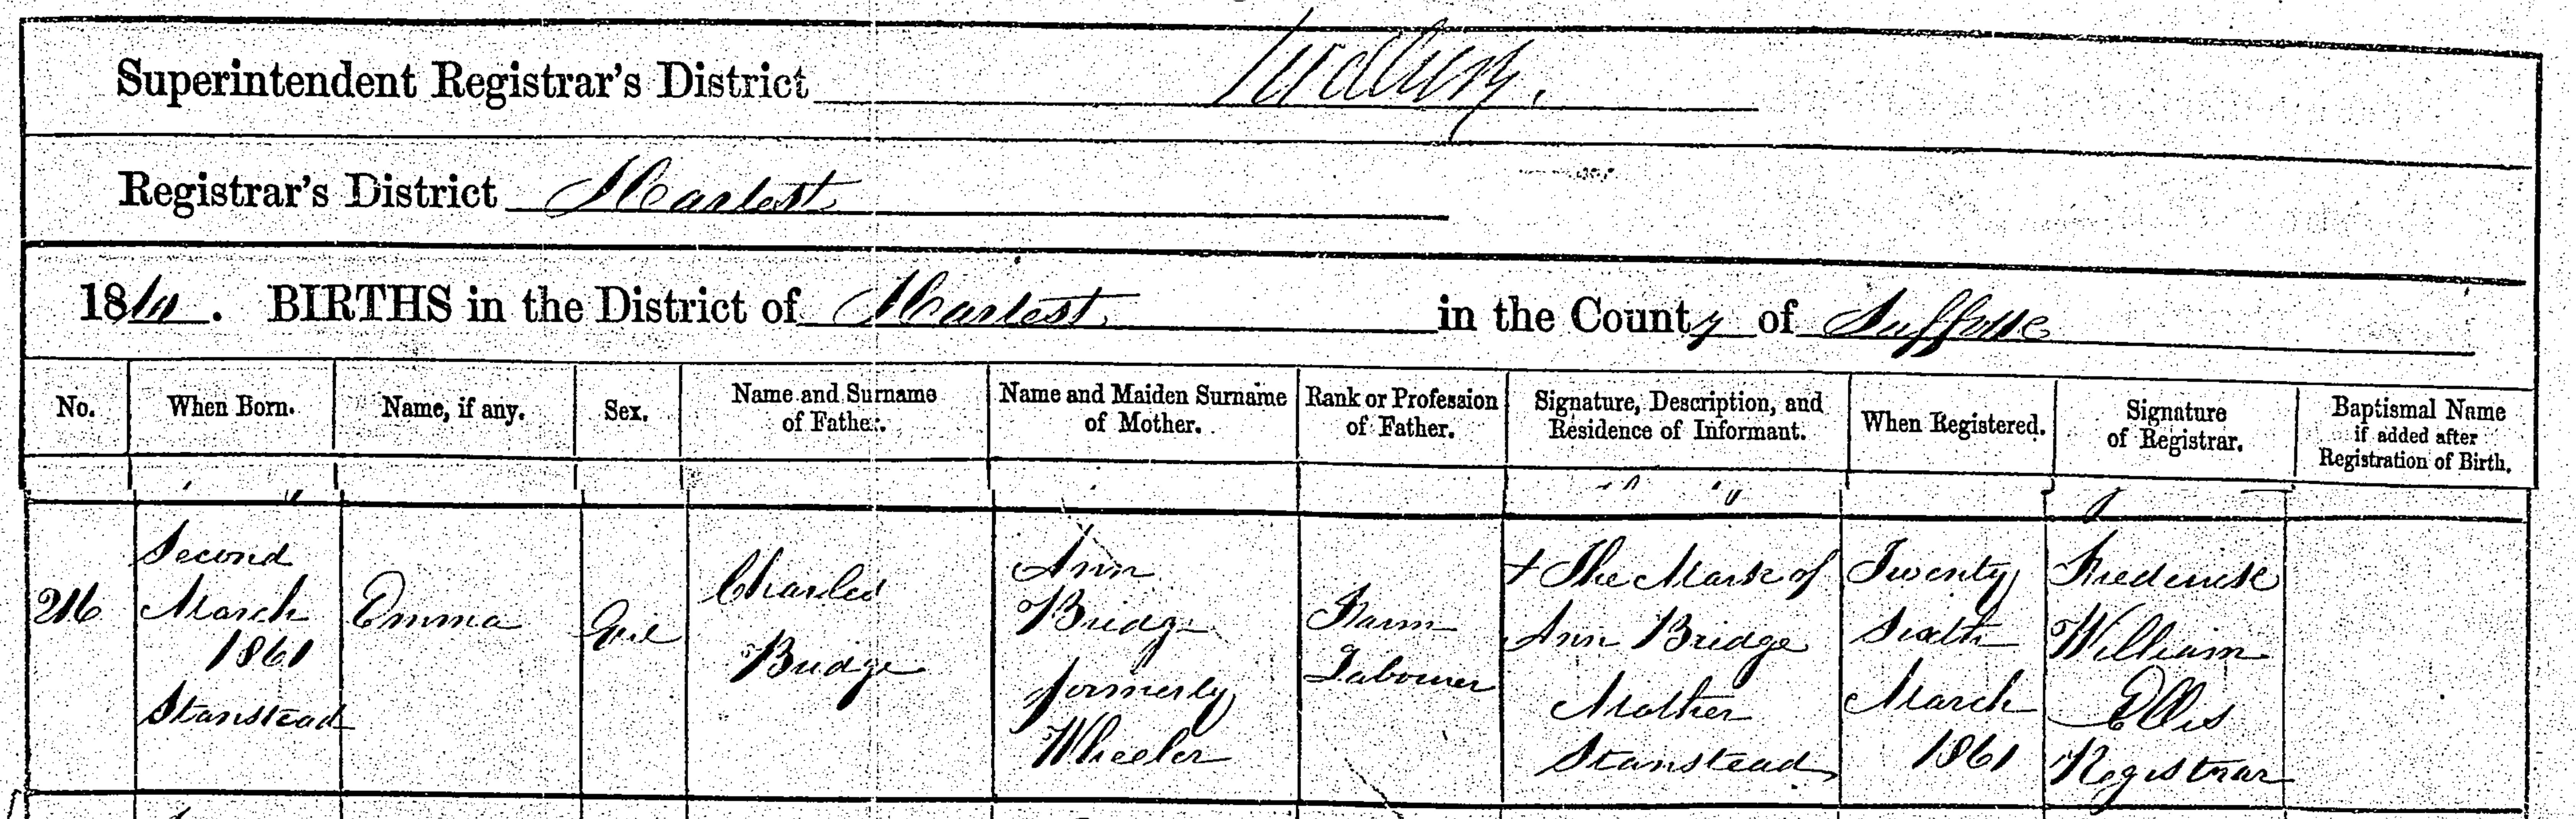 Superintendent Registrar's District Sudbury.
Registrar's District Hartest
1861. BIRTHS in the District of Hartest in the County of Suffolk
No. When Born. Name, if any. Sex. Name and Surname of Father. Name and Maiden Surname of Mother. Rank or Profession of Father. Signature, Description, and Residence of Informant. When Registered. Signature of Registrar. Baptismal Name if added after Registration of Birth.
216
Second
March
1861
Stanstead
Emma
Girl
Charles
Bridge
Ann
Bridge
formerly
Wheeler
Farm
Labourer
+ The Mark of
Ann Bridge
Mother
Stanstead
Twenty
Sixth
March
1861
Frederick
William
Ellis
Registrar